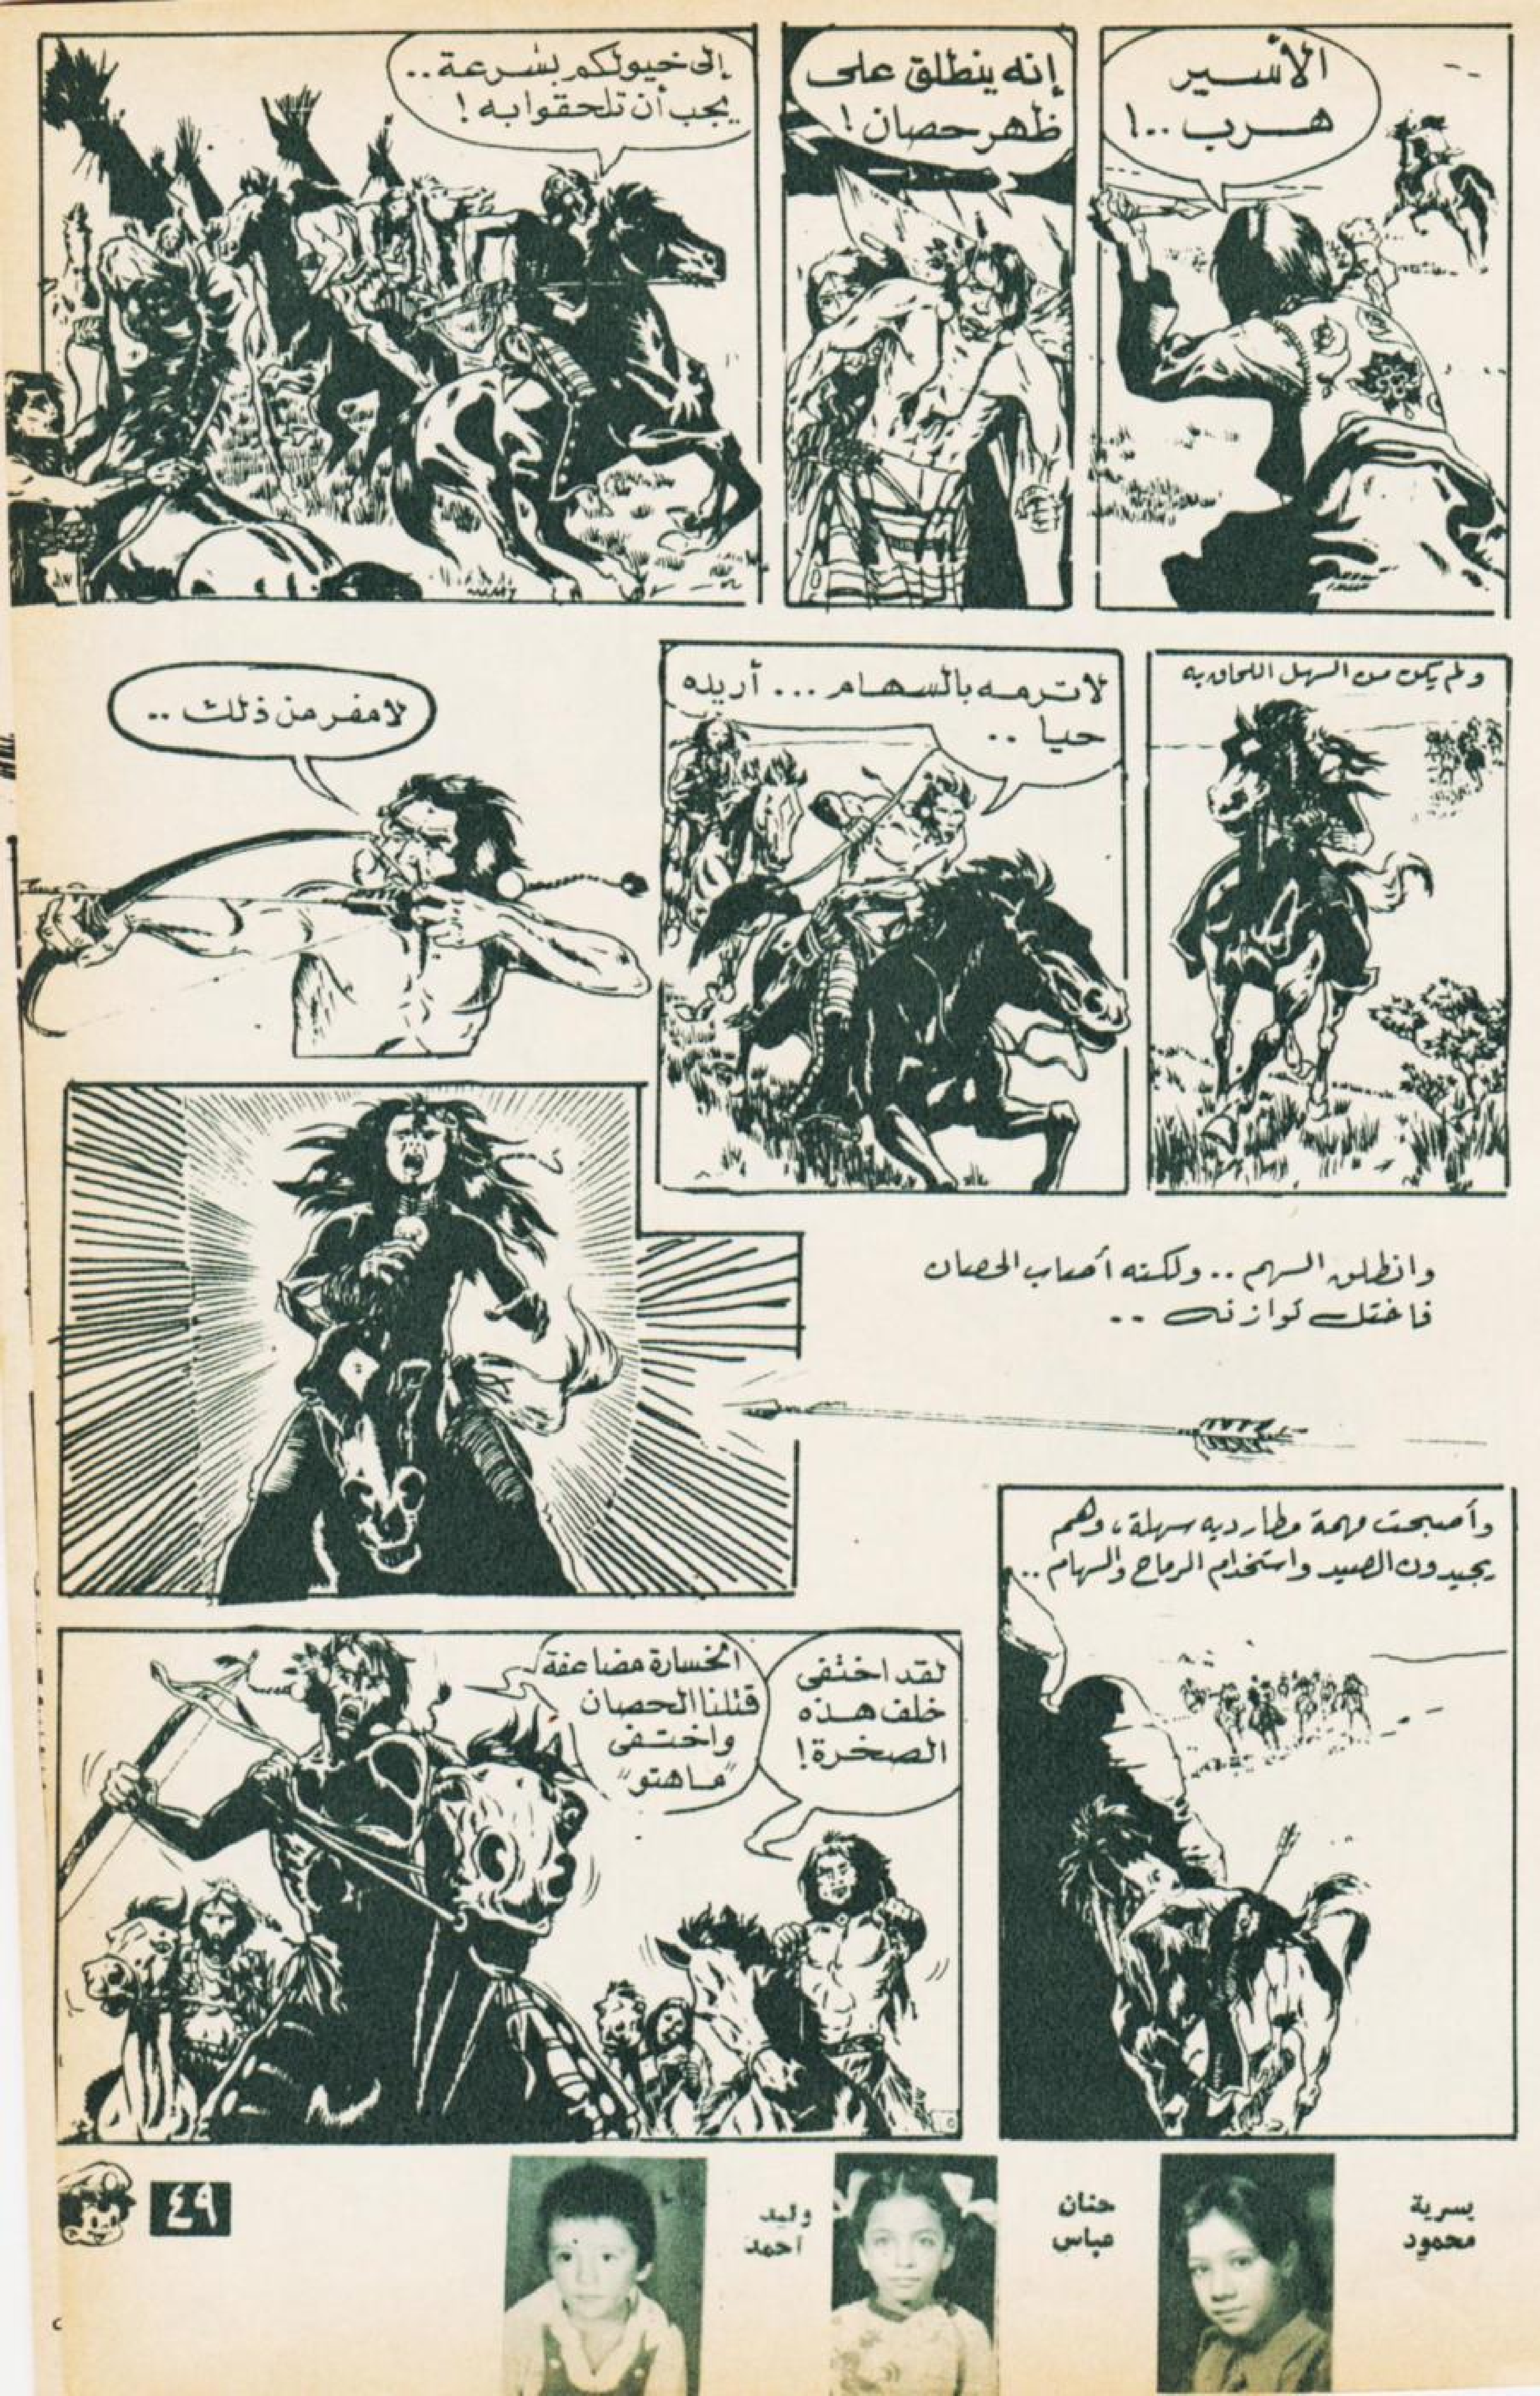 الأسير
هرب ..!
إنه ينطلق على
ظهر حصان !
إلى خيولكم بسرعة ..
يجب أن تلحقوا به !
ولم يكن من السهل اللحاق به
لا ترمه بالسهام ... أريده
حيا ..
لا مفر من ذلك ..
وانطلق السهم .. ولكنه أصاب الحصان
فاختل توازنه ..
وأصبحت مهمة مطارديه سهلة، وهم
يجيدون الصيد واستخدام الرماح والسهام ..
لقد اختفى
خلف هذه
الصخرة !
الخسارة مضاعفة
قتلنا الحصان
واختفى
"ماهتو"
يسرية
محمود
حنان
عباس
وليد
احمد
٤٩